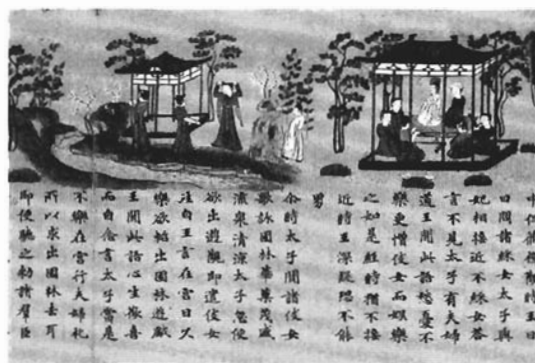 日問諸婇女太子與
妃相接近不婇女答
言不見太子有夫婦
道王聞此語愁憂不
樂更增伎女而娛樂
之如是經時猶不接
近時王深疑恐不能
男
尒時太子聞諸伎女
歌詠園林華菓茂盛
流泉清涼太子忽便
欲出遊觀即遣伎女
往白王言在宮日久
樂欲暫出園林遊戲
王聞此語心生歡喜
而自念言太子當是
不樂在宮行夫婦礼
所以求出園林去耳
即便聽之勅諸羣臣